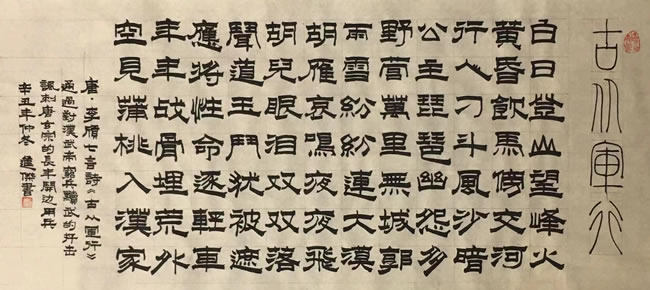 古从軍行
白日登山望峰火
黄昏飲馬傍交河
行人刁斗風沙暗
公主琵琶幽怨多
野营萬里無城郭
雨雪紛紛連大漠
胡雁哀鳴夜夜飛
胡兒眼泪双双落
聞道玉門犹被遮
應將性命逐軽車
年年战骨埋荒外
空見蒲桃入漢家
唐·李颀七言詩《古从軍行》
通過對漢武帝窮兵黷武的抨击
諷刺唐玄宗的長年開边用兵
辛丑年仲冬 進傑書